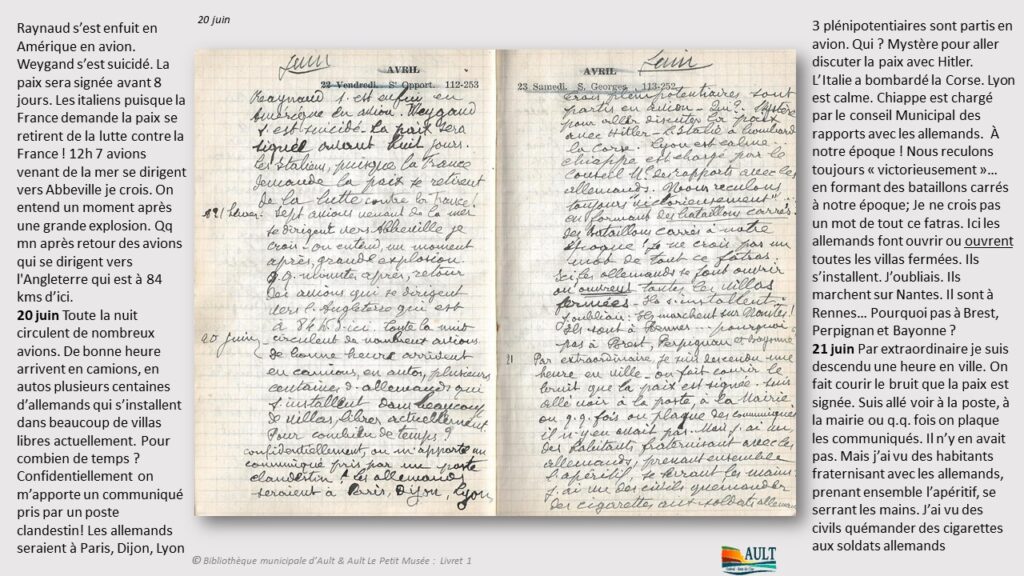 20 juin
Raynaud s’est enfuit en
Amérique en avion.
Weygand s’est suicidé. La
paix sera signée avant 8
jours. Les italiens puisque la
France demande la paix se
retirent de la lutte contre la
France ! 12h 7 avions
venant de la mer se dirigent
vers Abbeville je crois. On
entend un moment après
une grande explosion. Qq
mn après retour des avions
qui se dirigent vers
l'Angleterre qui est à 84
kms d’ici.
20 juin Toute la nuit
circulent de nombreux
avions. De bonne heure
arrivent en camions, en
autos plusieurs centaines
d’allemands qui s’installent
dans beaucoup de villas
libres actuellement. Pour
combien de temps ?
Confidentiellement on
m’apporte un communiqué
pris par un poste
clandestin! Les allemands
seraient à Paris, Dijon, Lyon
Juin
AVRIL
22 Vendredi. Sᵗ Opport. 112-253
Raynaud s'est enfui en
Amérique en avion. Weygand
s'est suicidé. La paix sera
signée avant huit jours.
Les Italiens, puisque la France
demande la paix se retirent
de la lutte contre la France!
Sept avions venant de la mer
se dirigent vers Abbeville je
crois - on entend, un moment
après, grande explosion.
q.q. minutes après, retour
des avions qui se dirigent
vers l'Angleterre qui est
à 84 K d'ici. toute la nuit
20 juin circulent de nombreux avions.
de bonne heure arrivent
en camions, en autos, plusieurs
centaines d'allemands qui
s'installent dans beaucoup
de villas libres actuellement
Pour combien de temps ?
confidentiellement, on m'apporte un
communiqué pris par un poste
clandestin ! les allemands
seraient à Paris, Dijon, Lyon
Juin
AVRIL
23 Samedi. S. Georges 113-252
trois plénipotentiaires sont
partis en avion - Qui ? Mystère
pour aller discuter la paix
avec Hitler - L'Italie a bombardé
la Corse. Lyon est calme.
Chiappe est chargé par le
Conseil Mᵃˡ des rapports avec les
allemands. Nous reculons
toujours "victorieusement"
en formant des bataillons carrés.
des bataillons carrés à notre
époque ! Je ne crois pas un
mot de tout ce fatras.
Ici les allemands se font ouvrir
ou ouvrent toutes les villas
fermées - Ils s'installent.
J'oubliais. Ils marchent sur Nantes!
Ils sont à Rennes... pourquoi
pas à Brest, Perpignan et Bayonne
21 Par extraordinaire, je suis descendu une
heure en ville - on fait courir le
bruit que la paix est signée - suis
allé voir à la poste, à la Mairie
où q.q. fois on plaque des communiqués
il n'y en avait pas. Mais j'ai vu
des habitants fraternisant avec les
allemands, prenant ensemble
l'apéritif, se serrant les mains.
j'ai vu des civils quémander
des cigarettes aux soldats allemands
3 plénipotentiaires sont partis en
avion. Qui ? Mystère pour aller
discuter la paix avec Hitler.
L’Italie a bombardé la Corse. Lyon
est calme. Chiappe est chargé
par le conseil Municipal des
rapports avec les allemands. À
notre époque ! Nous reculons
toujours « victorieusement »…
en formant des bataillons carrés
à notre époque; Je ne crois pas
un mot de tout ce fatras. Ici les
allemands font ouvrir ou ouvrent
toutes les villas fermées. Ils
s’installent. J’oubliais. Ils
marchent sur Nantes. Il sont à
Rennes… Pourquoi pas à Brest,
Perpignan et Bayonne ?
21 juin Par extraordinaire je suis
descendu une heure en ville. On
fait courir le bruit que la paix est
signée. Suis allé voir à la poste, à
la mairie ou q.q. fois on plaque
les communiqués. Il n’y en avait
pas. Mais j’ai vu des habitants
fraternisant avec les allemands,
prenant ensemble l’apéritif, se
serrant les mains. J’ai vu des
civils quémander des cigarettes
aux soldats allemands
© Bibliothèque municipale d’Ault & Ault Le Petit Musée : Livret 1
AULT